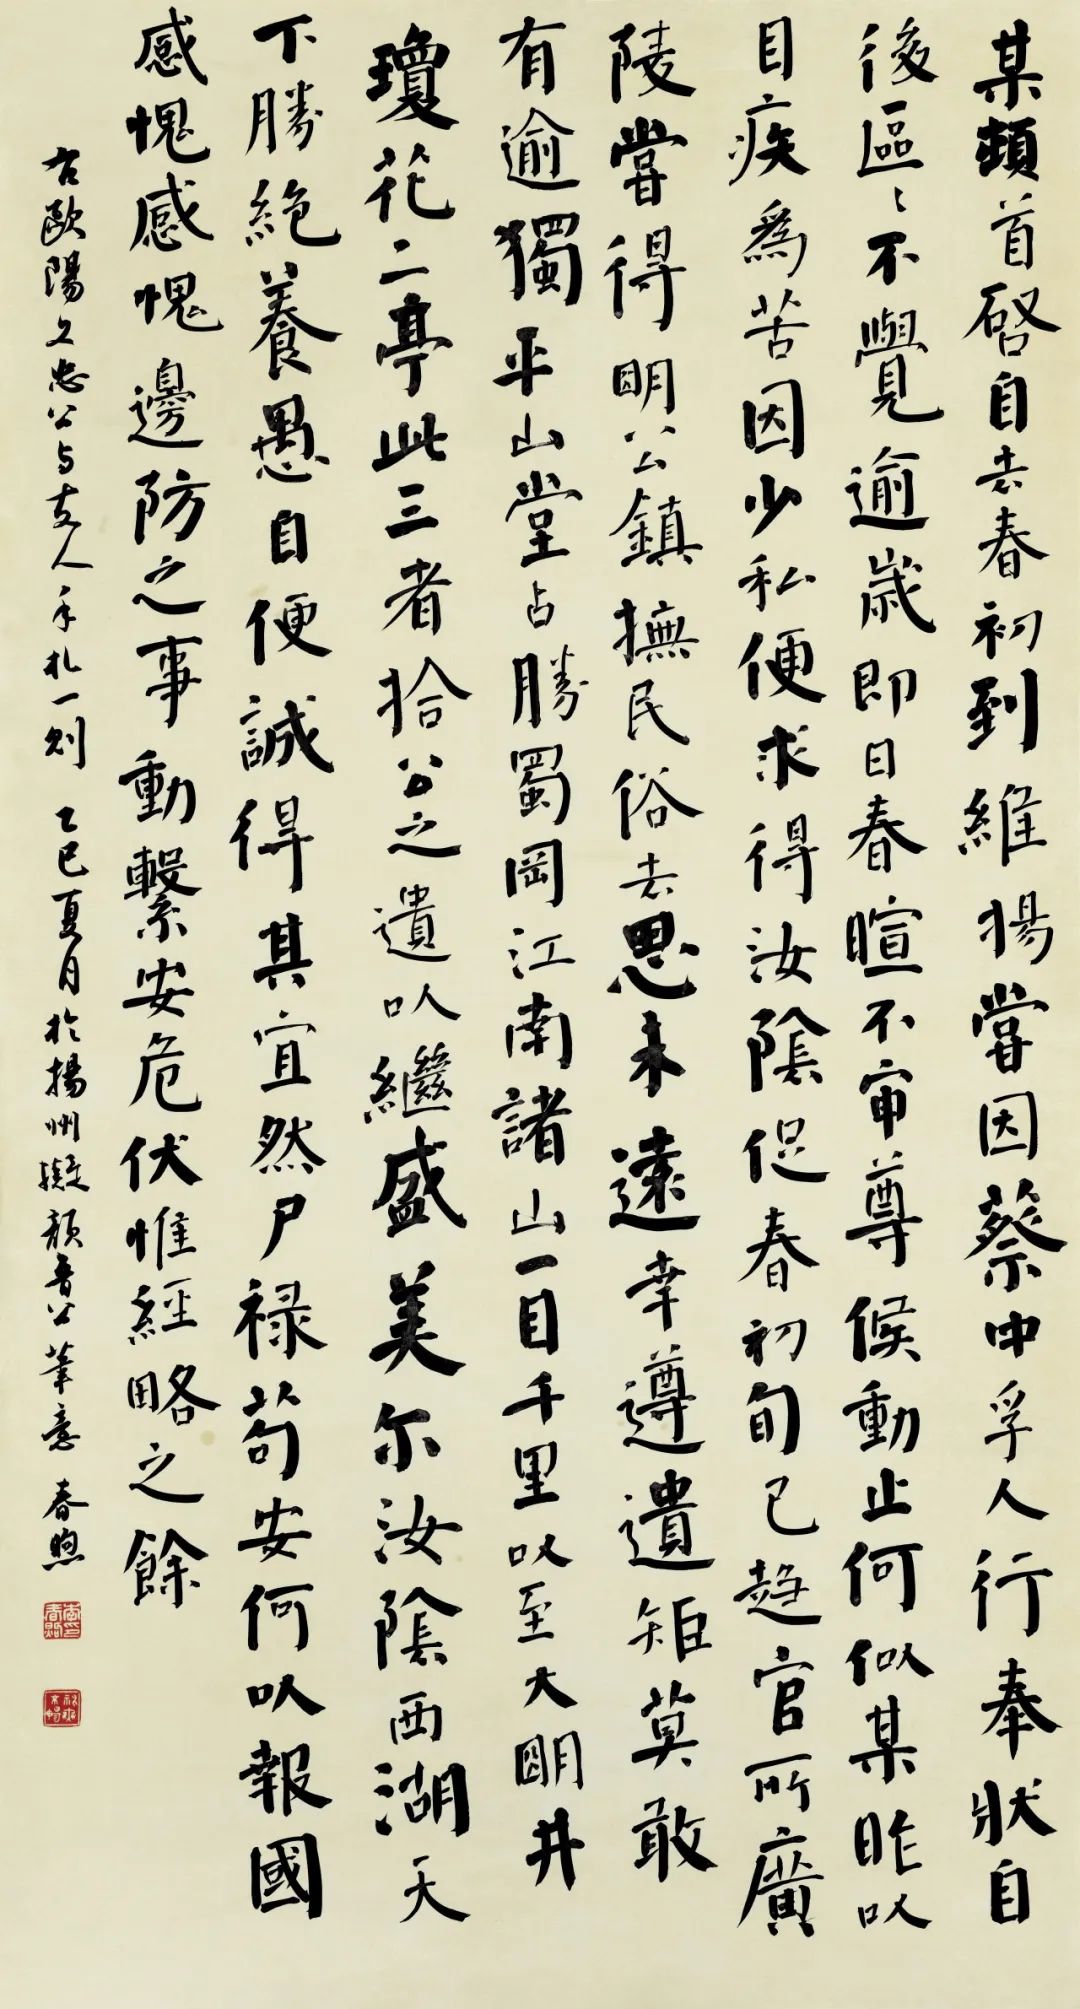 某頓首啓自去春初到維揚嘗因蔡中孚人行奉狀自
後區〻不覺逾歲即日春暄不審尊候動止何似某昨以
目疾為苦因少私便求得汝陰促春初旬已趨官所廣
陵嘗得明公鎮撫民俗去思未遠幸遵遺矩莫敢
有逾獨平山堂占勝蜀岡江南諸山一目千里以至大明井
瓊花二亭此三者拾公之遺以繼盛美尔汝陰西湖天
下勝絶養愚自便誠得其宜然尸禄苟安何以報國
感愧感愧邊防之事動繫安危伏惟經略之餘
右歐陽文忠公與友人手札一則 乙巳夏月於揚州擬顏魯公筆意 春煦